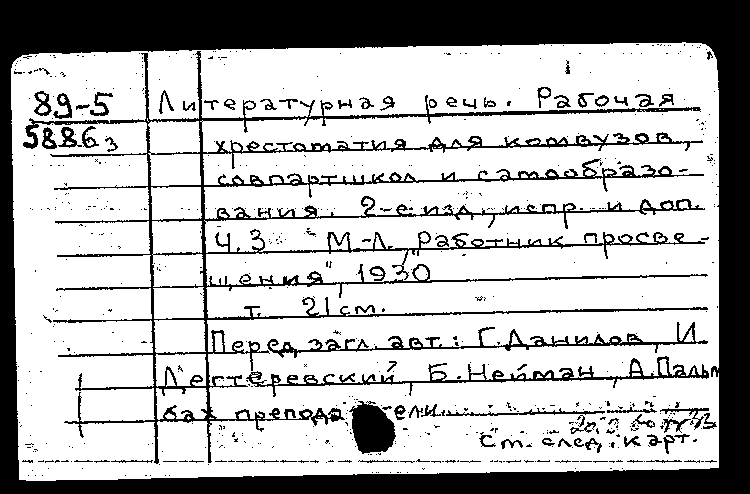 89-5 Литературная речь. Рабочая
5886з хрестоматия для комвузов,
совпартшкол и самообразо-
вания. 2-е изд., испр. и доп.
Ч. 3 М.-Л., "Работник просве-
щения", 1930
т. 21 см.
Перед загл. авт.: Г. Данилов, И.
Нестеревский, Б. Нейман, А. Пальм
бах препода тели
См. след. карт.